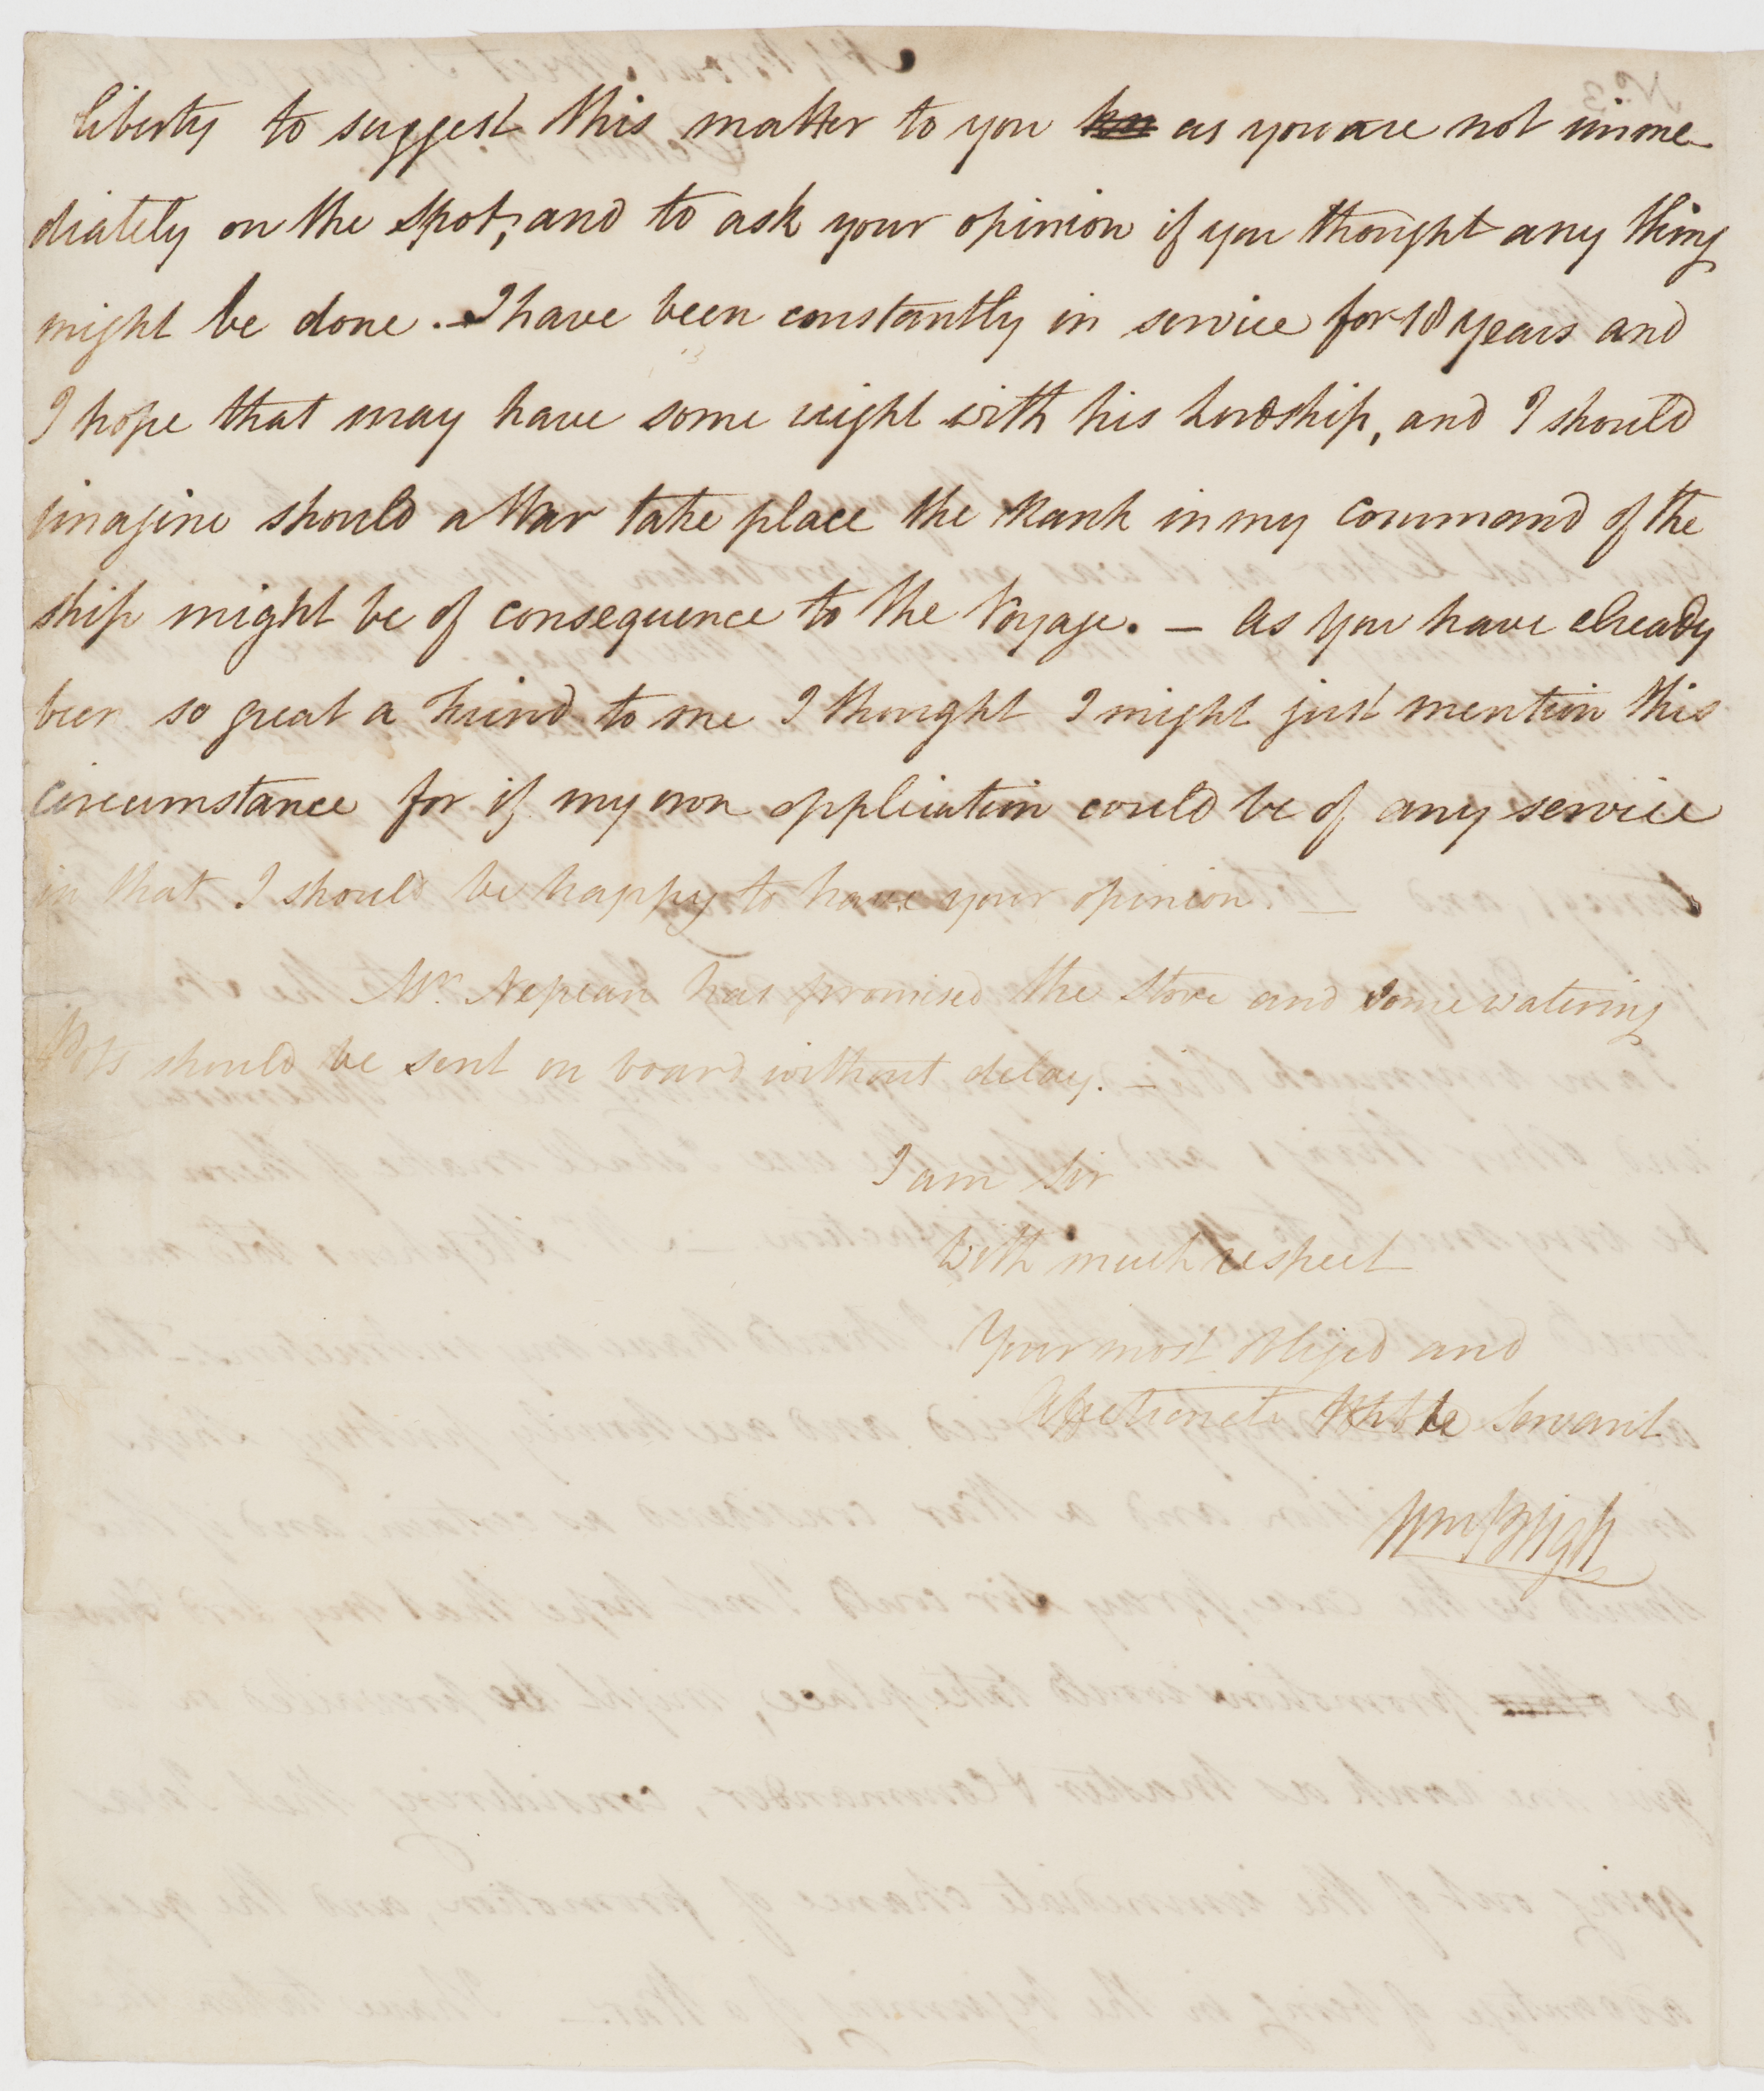 liberty to suggest this matter to you as you are not imme
diately on the spot, and to ask your opinion if you thought any thing
might be done. - I have been constantly in service for 18 years and
I hope that may have some weight with his Lordship, and I should
imagine should a War take place the Rank in my Command of the
ship might be of consequence to the Voyage. - As you have already
been so great a Friend to me I thought I might just mention this
circumstance for if my own application could be of any service
in that I should be happy to have your opinion. -
Mr. Nepean has promised the Stove and some watering
Pots should be sent on board without delay. -
I am Sir
With much respect
Your most Obliged and
Affectionate Hble Servant
Wm Bligh